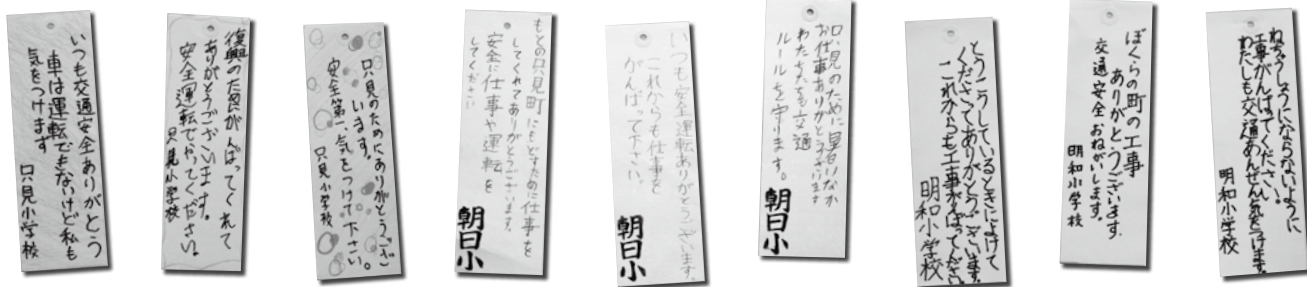 いつも交通安全ありがとう
車は運転できないけど私も
気をつけます
只見小学校
復興のためがんばってくれて
ありがとうございます。
安全運転でやってください。
只見小学校
只見のためにありがとうござ
います。
安全第一、気をつけて下さい。
只見小学校
もとの只見町にもどすために仕事を
してくれてありがとうございます。
安全に仕事や運転を
してください
朝日小
いつも安全運転ありがとうございます。
これからも仕事を
がんばって下さい。
朝日小
只見のために暑いなか
お仕事ありがとうございます
わたちたちも交通
ルールを守ります。
朝日小
とうこうしているときによけて
くださってありがとうございます。
これからも工事がんばってください
明和小学校
ぼくらの町の工事
ありがとうございます。
交通安全おねがいします。
明和小学校
ねっちゅうしょうにならないように
工事がんばってください。
わたしも交通あんぜん気をつけます。
明和小学校